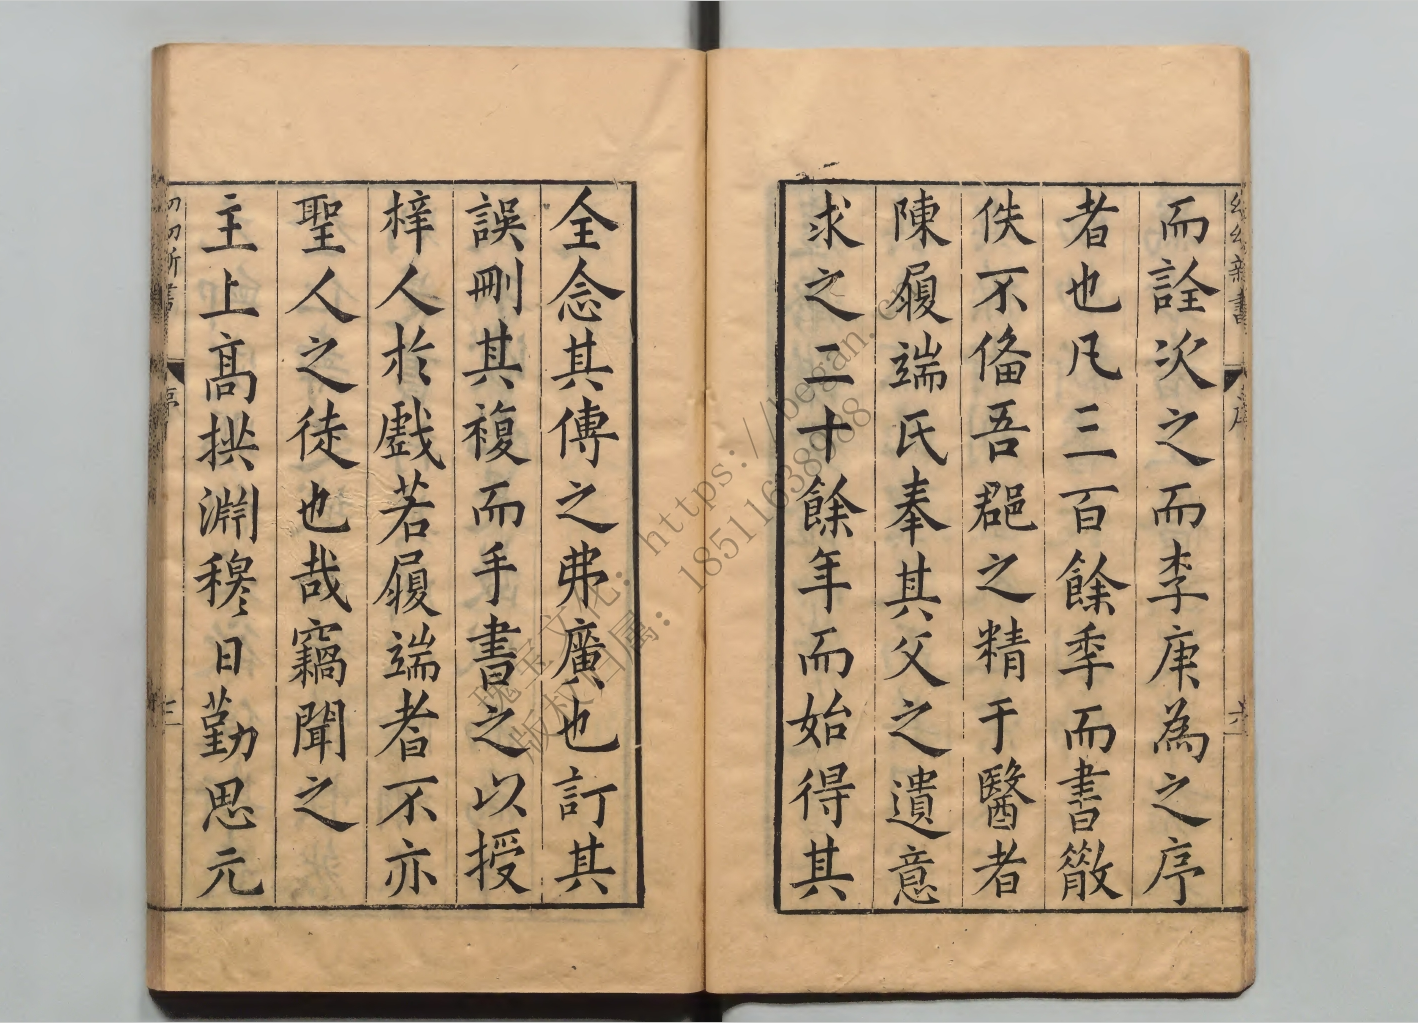 而詮次之而李庚為之序
者也凡三百餘季而書散
佚不俻吾郡之精于醫者
陳履端氏奉其父之遺意
求之二十餘年而始得其
全念其傳之弗廣也訂其
誤刪其複而手書之以授
梓人於戲若履端者不亦
聖人之徒也哉竊聞之
主上高拱淵穆日勤思元
幼幼新書
序
幼幼新書
序
三
瑰宝文化:https://began.cc
版权归属：18511638988